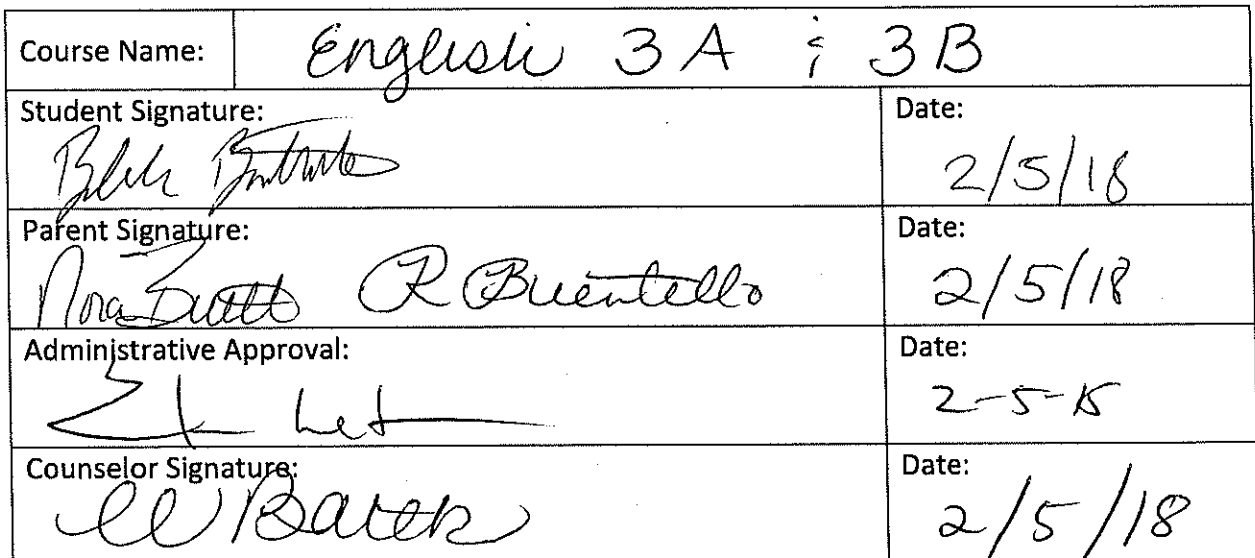 Course Name: English 3A & 3B
Student Signature: Date:
2/5/18
Parent Signature: Date:
Nora R Buentello 2/5/18
Administrative Approval: Date:
Counselor Signature: Date:
2/5/18